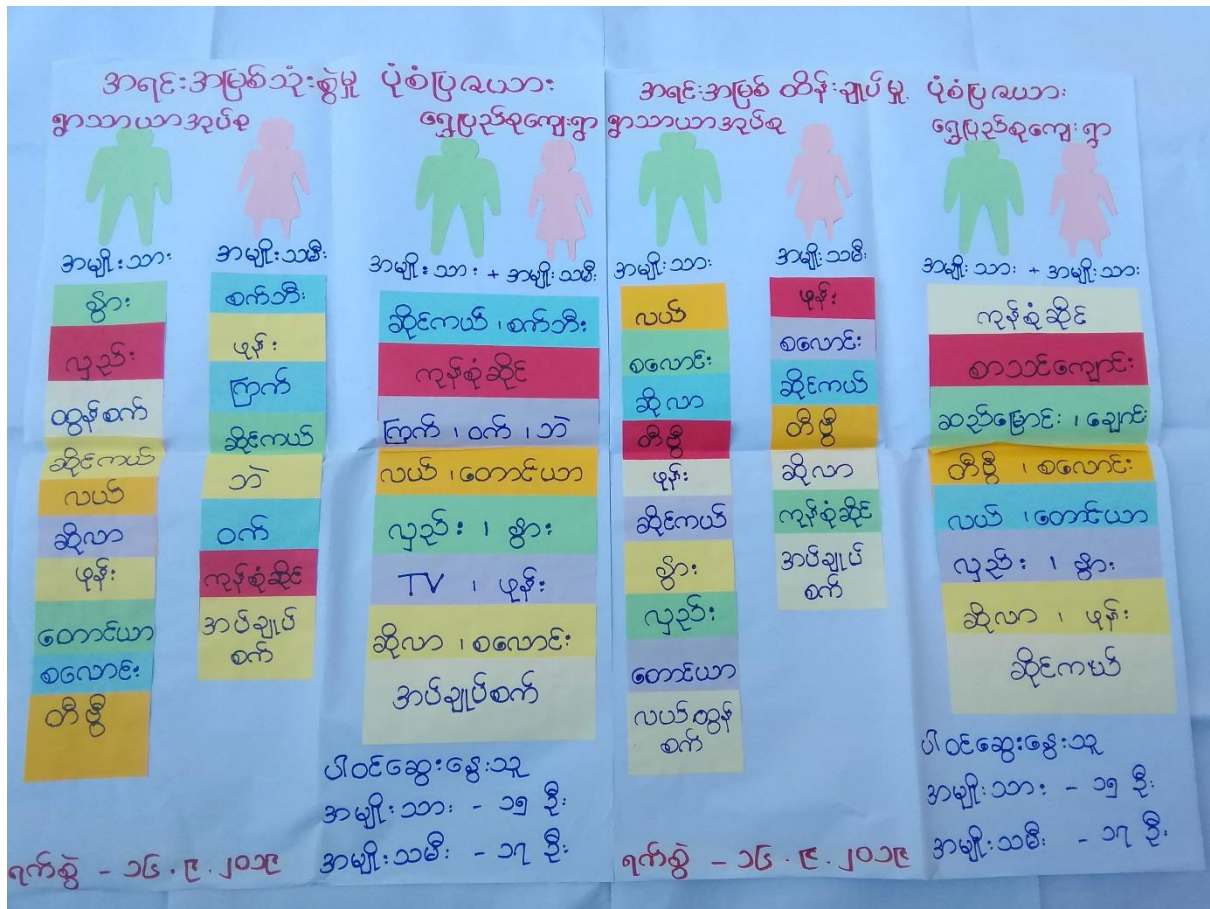 အရင်းအမြစ်သုံးစွဲမှု ပုံစံပြဇယား
ရွာသာယာအုပ်စု ရွှေပြည်စုကျေးရွာ
အမျိုးသား
နွား
လှည်း
ထွန်စက်
ဆိုင်ကယ်
လယ်
ဆိုလာ
ဖုန်း
တောင်ယာ
စလောင်း
တီဗွီ
အမျိုးသမီး
စက်ဘီး
ဖုန်း
ကြက်
ဆိုင်ကယ်
ဘဲ
ဝက်
ကုန်စုံဆိုင်
အပ်ချုပ်
စက်
အမျိုးသား + အမျိုးသမီး
ဆိုင်ကယ် ၊ စက်ဘီး
ကုန်စုံဆိုင်
ကြက် ၊ ဝက် ၊ ဘဲ
လယ် ၊ တောင်ယာ
လှည်း ၊ နွား
TV ၊ ဖုန်း
ဆိုလာ ၊ စလောင်း
အပ်ချုပ်စက်
ပါဝင်ဆွေးနွေးသူ
အမျိုးသား - ၁၅ ဦး
အမျိုးသမီး - ၁၇ ဦး
ရက်စွဲ - ၁၆.၉.၂၀၁၉
အရင်းအမြစ် ထိန်းချုပ်မှု ပုံစံပြဇယား
ရွာသာယာအုပ်စု ရွှေပြည်စုကျေးရွာ
အမျိုးသား
လယ်
စလောင်း
ဆိုလာ
တီဗွီ
ဖုန်း
ဆိုင်ကယ်
နွား
လှည်း
တောင်ယာ
လယ်ထွန်
စက်
အမျိုးသမီး
ဖုန်း
စလောင်း
ဆိုင်ကယ်
တီဗွီ
ဆိုလာ
ကုန်စုံဆိုင်
အပ်ချုပ်
စက်
အမျိုးသား + အမျိုးသား
ကုန်စုံဆိုင်
စာသင်ကျောင်း
ဆည်မြောင်း ၊ ချောင်း
တီဗွီ ၊ စလောင်း
လယ် ၊ တောင်ယာ
လှည်း ၊ နွား
ဆိုလာ ၊ ဖုန်း
ဆိုင်ကယ်
ပါဝင်ဆွေးနွေးသူ
အမျိုးသား - ၁၅ ဦး
အမျိုးသမီး - ၁၇ ဦး
ရက်စွဲ - ၁၆.၉.၂၀၁၉